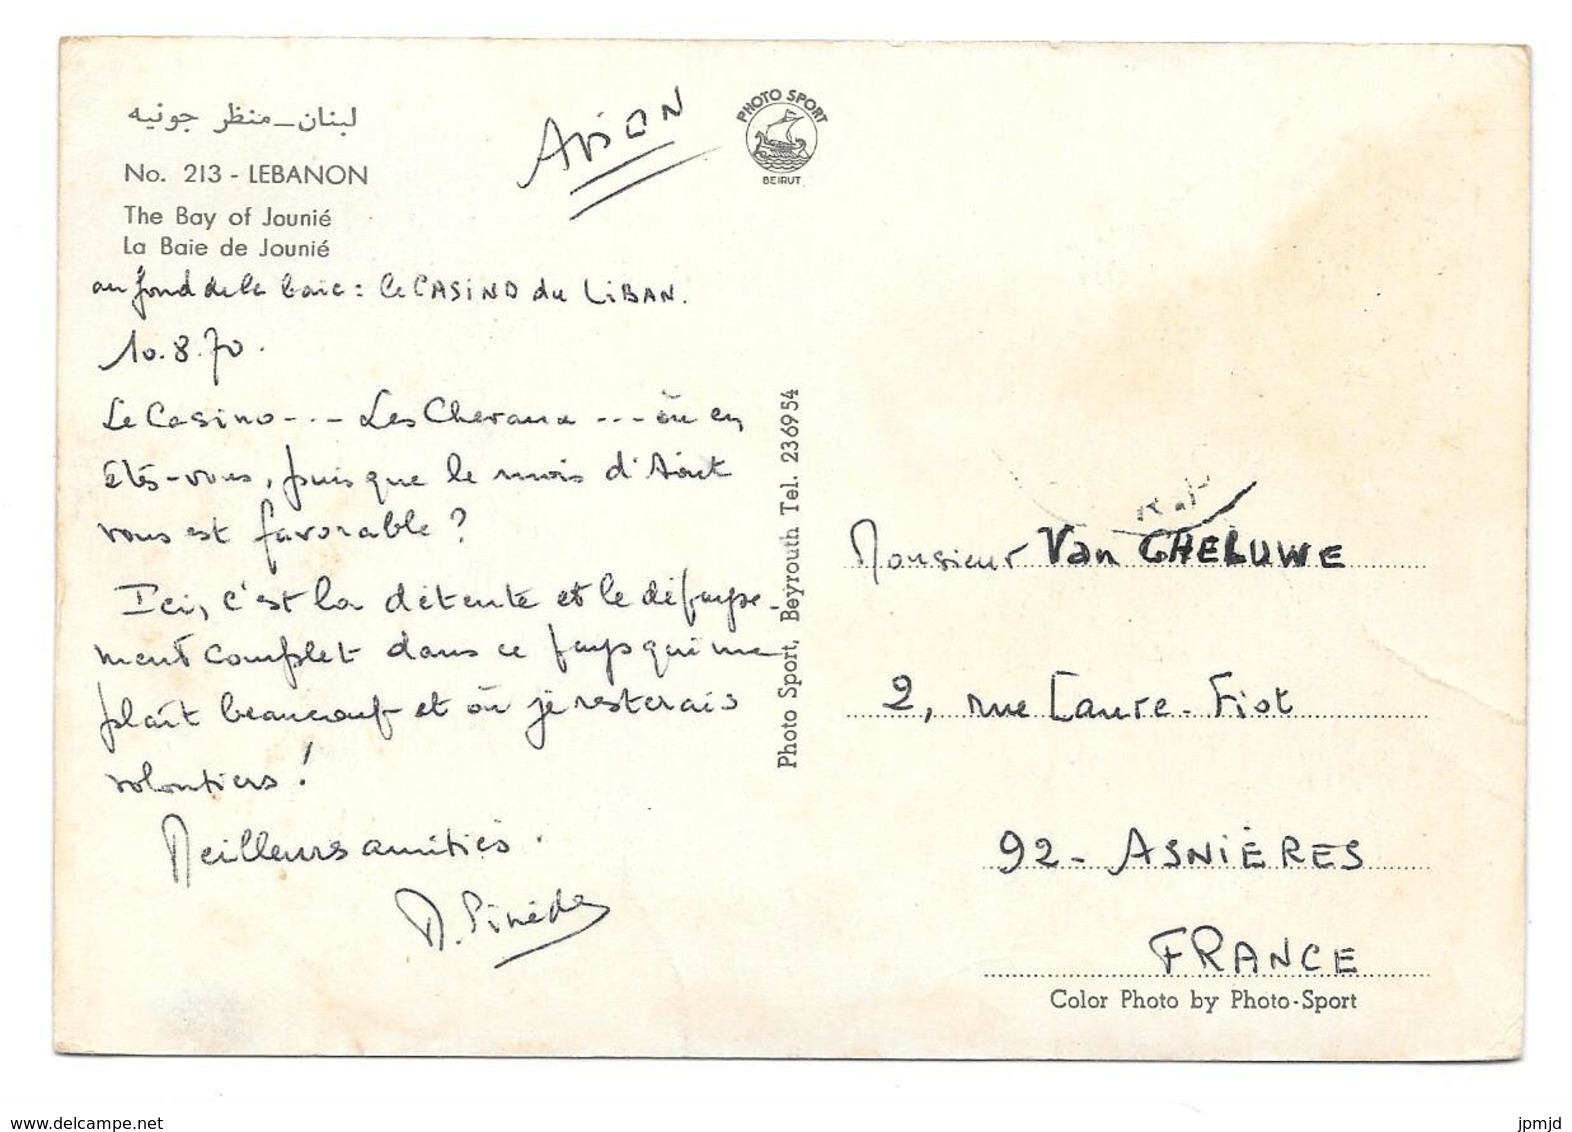 لبنان ـ منظر جونيه
No. 213 - LEBANON
The Bay of Jounié
La Baie de Jounié
Avion
PHOTO SPORT
BEIRUT
au fond de la baie : le CASINO du LiBAN.
10.8.70.
Le Casino --- Les Chevaux --- où en
êtes-vous, puisque le mois d'Août
vous est favorable ?
Ici, c'est la détente et le dépayse-
ment complet dans ce pays qui me
plaît beaucoup et où je resterais
volontiers !
Meilleurs amitiés.
Photo Sport, Beyrouth Tel. 236954
Monsieur Van GHELUWE
2, rue Laure-Fiot
92 - ASNIÈRES
FRANCE
Color Photo by Photo-Sport
www.delcampe.net
jpmjd